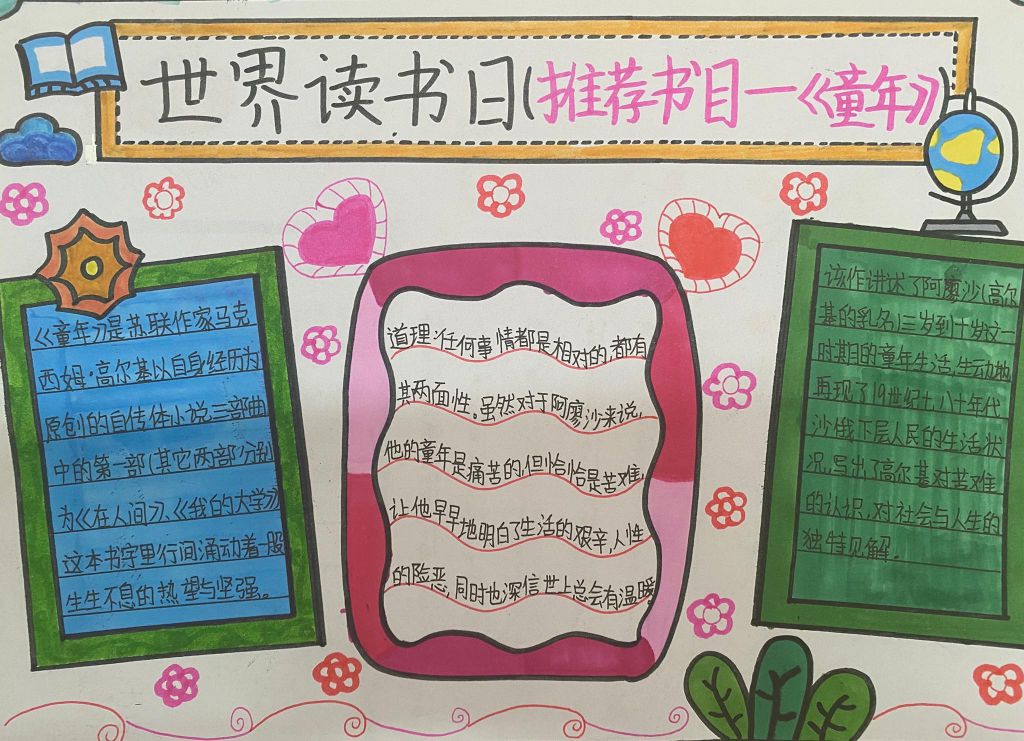 世界读书日(推荐书目一《童年》)
《童年》是苏联作家马克
西姆·高尔基以自身经历为
原创的自传体小说三部曲
中的第一部(其它两部分别
为《在人间》、《我的大学》)
这本书字里行间涌动着一股
生生不息的热望与坚强。
道理:任何事情都是相对的,都有
其两面性。虽然对于阿廖沙来说,
他的童年是痛苦的,但恰恰是苦难,
让他早早地明白了生活的艰辛,人性
的险恶,同时也深信世上总会有温暖
该作讲述了阿廖沙(高尔
基的乳名)三岁到十岁这一
时期的童年生活,生动地
再现了19世纪七八十年代
沙俄下层人民的生活状
况,写出了高尔基对苦难
的认识,对社会与人生的
独特见解.